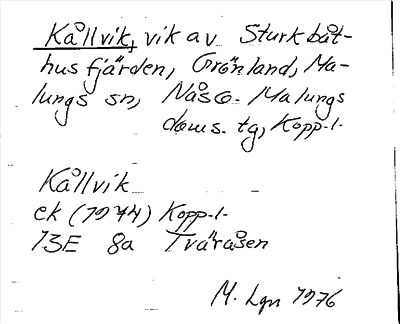 Kållvik, vik av Sturkbåt-
husfjärden, Grönland, Ma-
lungs sn, Nås o. Malungs
doms. tg, Kopp. l.
Kållvik
ek (1944) Kopp. l.
13E 8a Tväråsen
M. Lgn 1976